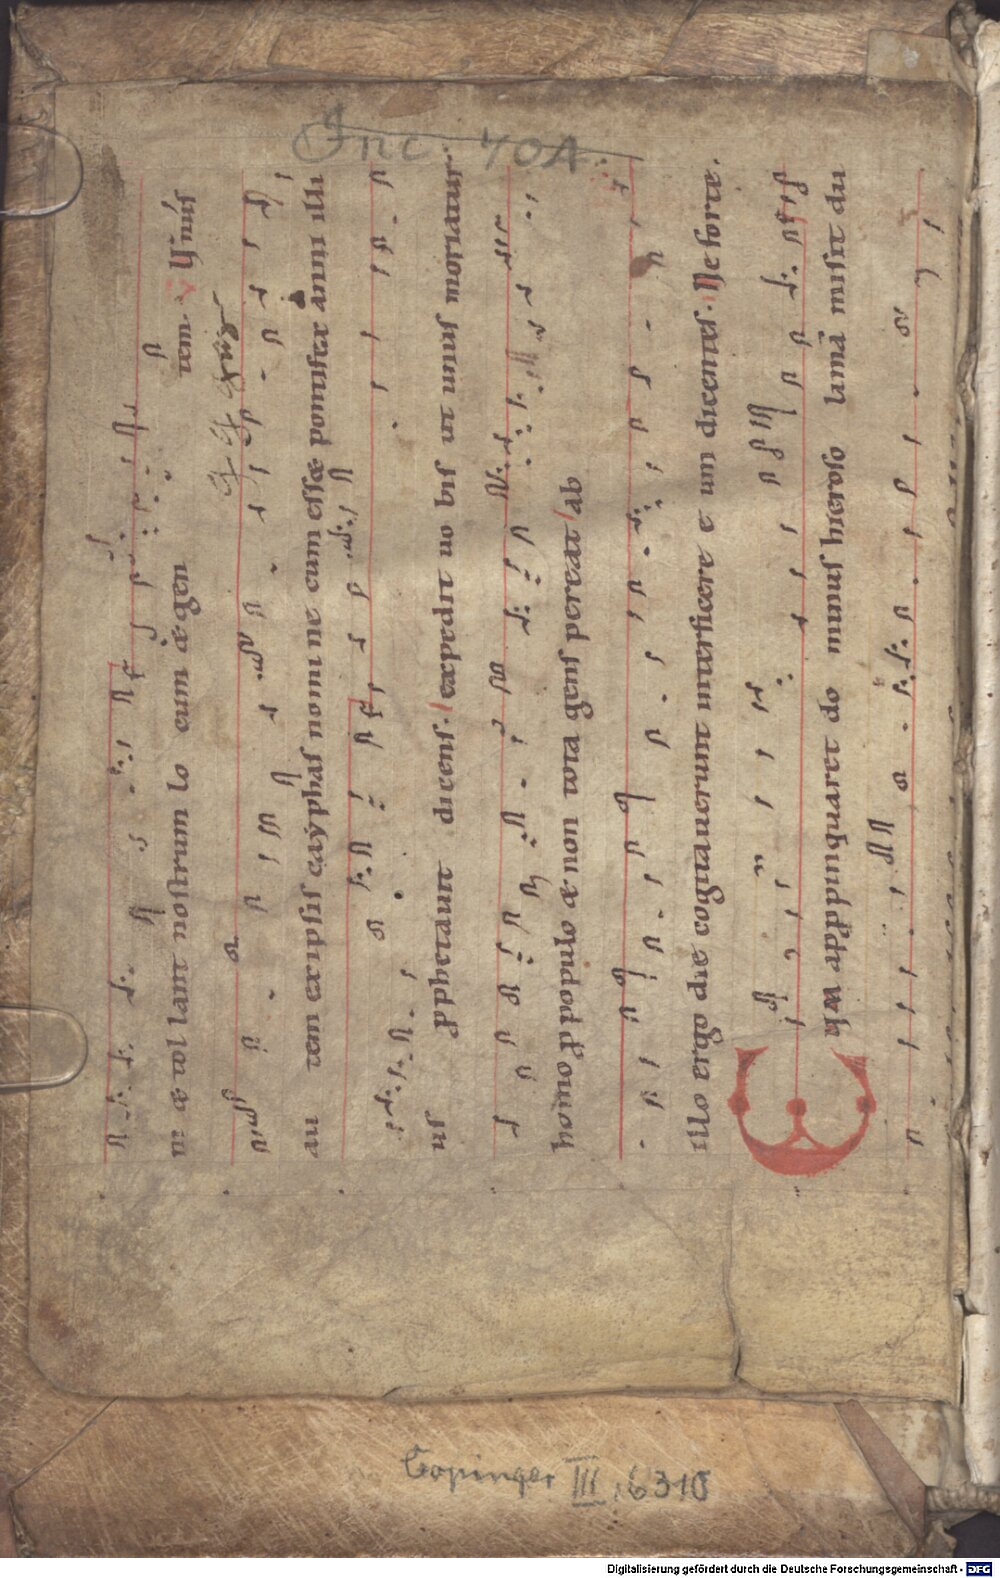 Inc. 70A.
nr & tollant nostrum lo cum & gen tem. V Unus
au tem ex ipsis caÿphas nomine cum esset pontifex anni illi
us prophetauit dicens. expedit uobis ut unus moriatur
homo pro populo & non tota gens pereat ab
illo ergo die cogitauerunt interficere eum dicentes. Ne forte.
CUM appropinquaret dominus hierosolimam misit du
Copinger III, 6310
Digitalisierung gefördert durch die Deutsche Forschungsgemeinschaft - DFG